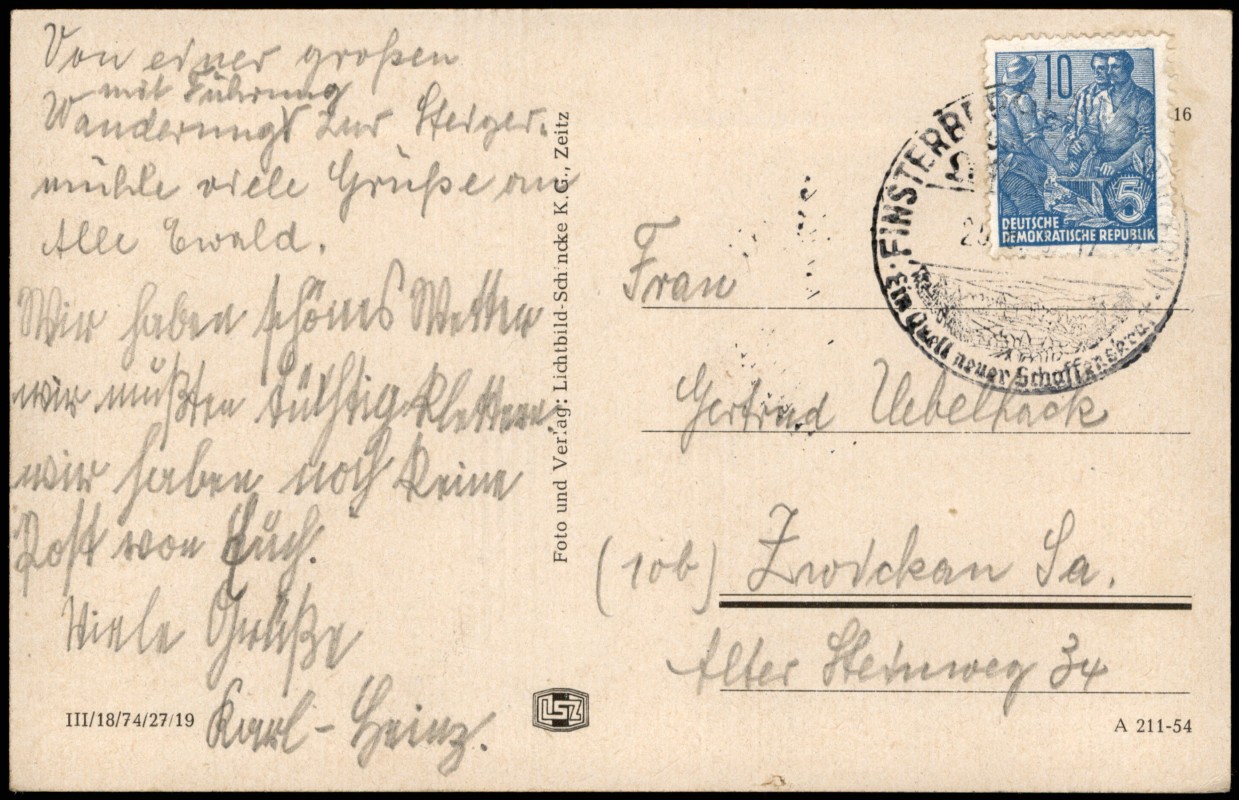 Von einer großen
mit Führung
Wanderung zur Steiger-
mühle viele Grüße an
Alle Ewald.
Wir haben schönes Wetter
wir mußten tüchtig klettern.
wir haben noch keine
Post von Euch.
Viele Grüße
Karl-Heinz.
III/18/74/27/19
Foto und Verlag: Lichtbild-Schincke K.G., Zeitz
LSZ
16
10
5
DEUTSCHE
DEMOKRATISCHE REPUBLIK
FINSTERBER
Ein Quell neuer Schaffenskra
Frau
Gertrud Uebelhack
(10b) Zwickau Sa.
Alter Steinweg 34
A 211-54